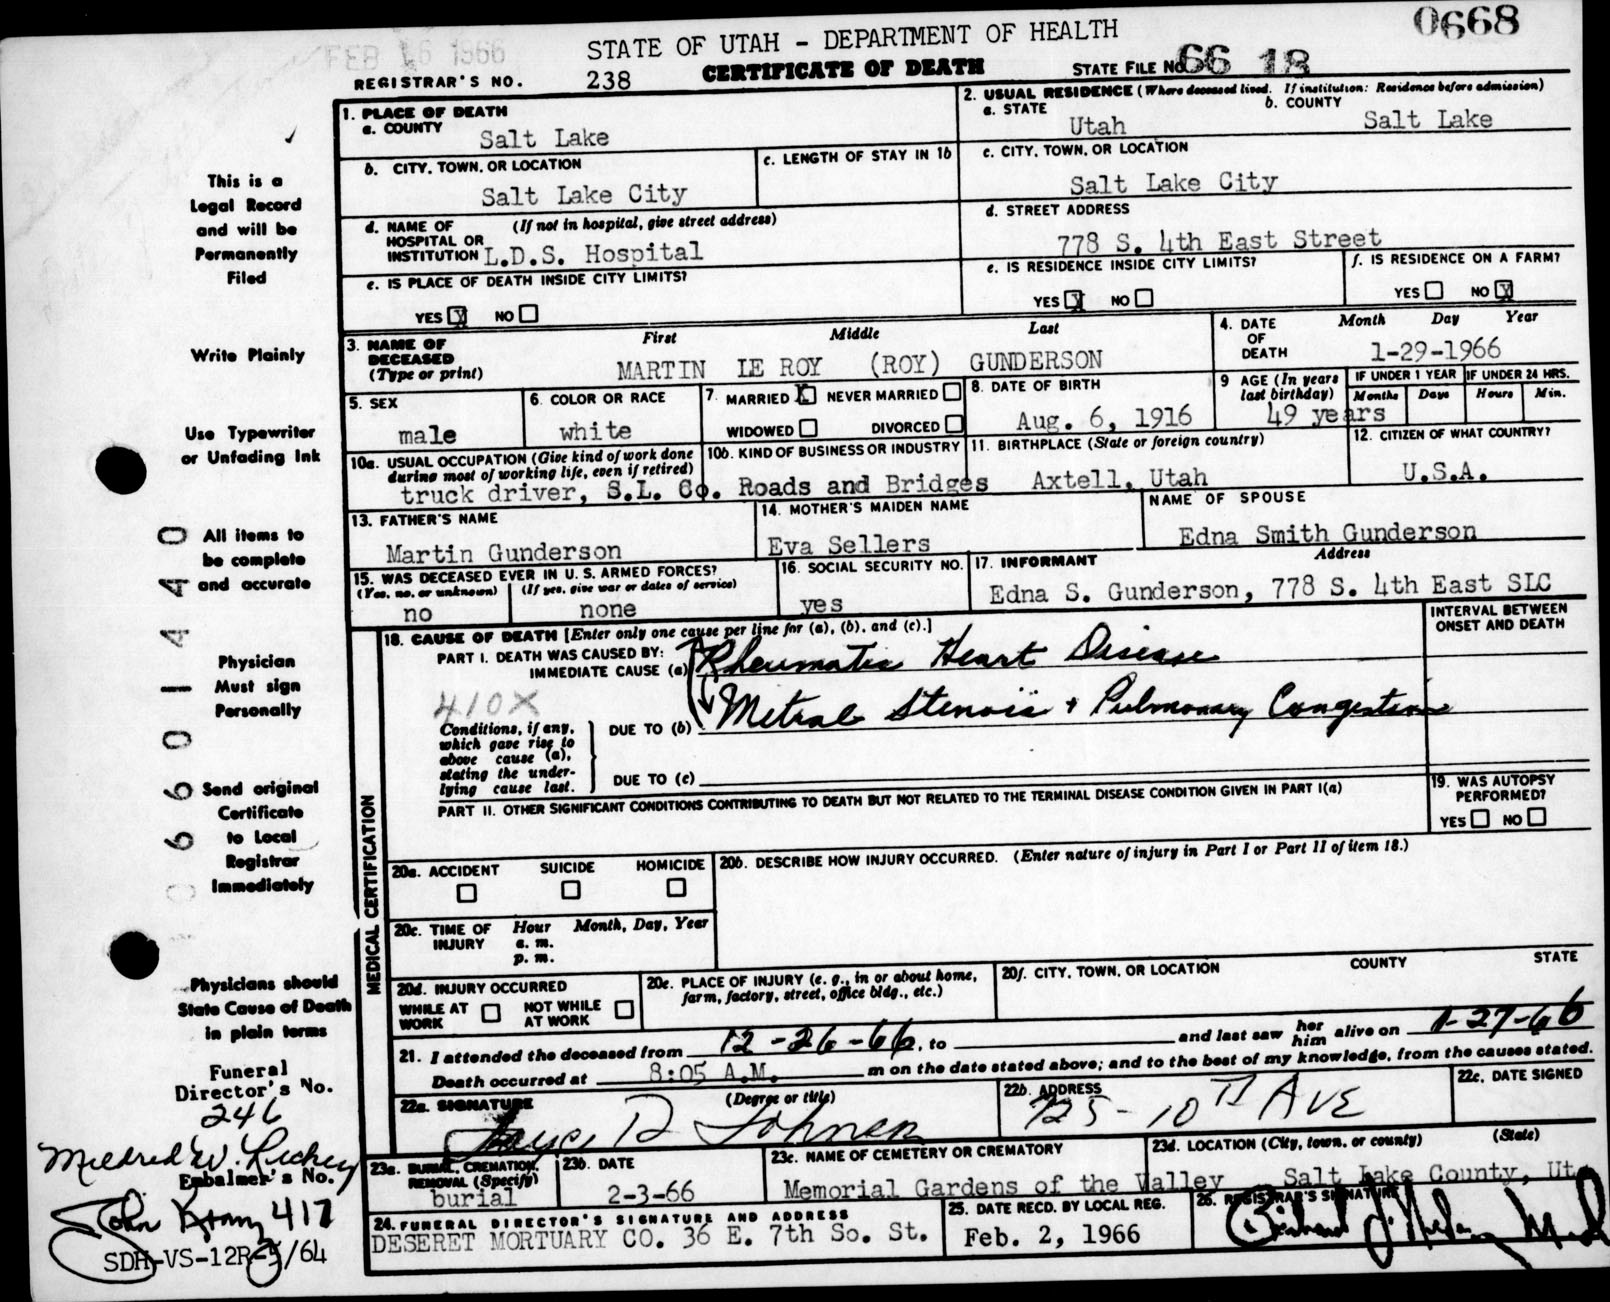 0668
FEB 16 1966
STATE OF UTAH - DEPARTMENT OF HEALTH
REGISTRAR'S NO. 238 CERTIFICATE OF DEATH STATE FILE NO. 66 18
1. PLACE OF DEATH
a. COUNTY
Salt Lake
2. USUAL RESIDENCE (Where deceased lived. If institution: Residence before admission)
a. STATE b. COUNTY
Utah Salt Lake
b. CITY, TOWN, OR LOCATION
Salt Lake City
c. LENGTH OF STAY IN 1b
c. CITY, TOWN, OR LOCATION
Salt Lake City
d. NAME OF (If not in hospital, give street address)
HOSPITAL OR
INSTITUTION L.D.S. Hospital
d. STREET ADDRESS
778 S. 4th East Street
e. IS PLACE OF DEATH INSIDE CITY LIMITS?
YES X NO
e. IS RESIDENCE INSIDE CITY LIMITS?
YES X NO
f. IS RESIDENCE ON A FARM?
YES NO X
3. NAME OF First Middle Last
DECEASED
(Type or print) MARTIN LE ROY (ROY) GUNDERSON
4. DATE Month Day Year
OF
DEATH 1-29-1966
5. SEX
male
6. COLOR OR RACE
white
7. MARRIED X NEVER MARRIED
WIDOWED DIVORCED
8. DATE OF BIRTH
Aug. 6, 1916
9 AGE (In years
last birthday)
49 years
IF UNDER 1 YEAR IF UNDER 24 HRS.
Months Days Hours Min.
10a. USUAL OCCUPATION (Give kind of work done
during most of working life, even if retired)
10b. KIND OF BUSINESS OR INDUSTRY
truck driver, S.L. Co. Roads and Bridges
11. BIRTHPLACE (State or foreign country)
Axtell, Utah
12. CITIZEN OF WHAT COUNTRY?
U.S.A.
13. FATHER'S NAME
Martin Gunderson
14. MOTHER'S MAIDEN NAME
Eva Sellers
NAME OF SPOUSE
Edna Smith Gunderson
15. WAS DECEASED EVER IN U. S. ARMED FORCES?
(Yes, no, or unknown) (If yes, give war or dates of service)
no none
16. SOCIAL SECURITY NO.
yes
17. INFORMANT Address
Edna S. Gunderson, 778 S. 4th East SLC
18. CAUSE OF DEATH [Enter only one cause per line for (a), (b), and (c).]
INTERVAL BETWEEN
ONSET AND DEATH
PART I. DEATH WAS CAUSED BY:
IMMEDIATE CAUSE (a) Rheumatic Heart Disease
410X
Conditions, if any,
which gave rise to
above cause (a),
stating the under-
lying cause last.
DUE TO (b) Metral Stenosis + Pulmonary Congestion
DUE TO (c)
PART II. OTHER SIGNIFICANT CONDITIONS CONTRIBUTING TO DEATH BUT NOT RELATED TO THE TERMINAL DISEASE CONDITION GIVEN IN PART I(a)
19. WAS AUTOPSY
PERFORMED?
YES NO
MEDICAL CERTIFICATION
20a. ACCIDENT SUICIDE HOMICIDE
20b. DESCRIBE HOW INJURY OCCURRED. (Enter nature of injury in Part I or Part II of item 18.)
20c. TIME OF Hour Month, Day, Year
INJURY a. m.
p. m.
20d. INJURY OCCURRED
WHILE AT WORK NOT WHILE AT WORK
20e. PLACE OF INJURY (e. g., in or about home,
farm, factory, street, office bldg., etc.)
20f. CITY, TOWN, OR LOCATION COUNTY STATE
21. I attended the deceased from 12-26-66, to and last saw her him alive on 1-27-66
Death occurred at 8:05 A.M. m on the date stated above; and to the best of my knowledge, from the causes stated.
22a. SIGNATURE (Degree or title)
22b. ADDRESS
725-10th AVE
22c. DATE SIGNED
23a. BURIAL, CREMATION,
REMOVAL (Specify)
burial
23b. DATE
2-3-66
23c. NAME OF CEMETERY OR CREMATORY
Memorial Gardens of the Valley
23d. LOCATION (City, town, or county) (State)
Salt Lake County, Ut
24. FUNERAL DIRECTOR'S SIGNATURE AND ADDRESS
DESERET MORTUARY CO. 36 E. 7th So. St.
25. DATE RECD. BY LOCAL REG.
Feb. 2, 1966
26. REGISTRAR'S SIGNATURE
This is a
Legal Record
and will be
Permanently
Filed
Write Plainly
Use Typewriter
or Unfading Ink
All items to
be complete
and accurate
Physician
Must sign
Personally
Send original
Certificate
to Local
Registrar
Immediately
Physicians should
State Cause of Death
in plain terms
0660140440
Funeral
Director's No.
246
Mildred W.
Embalmer's No.
John 417
SDH-VS-12R-5/64